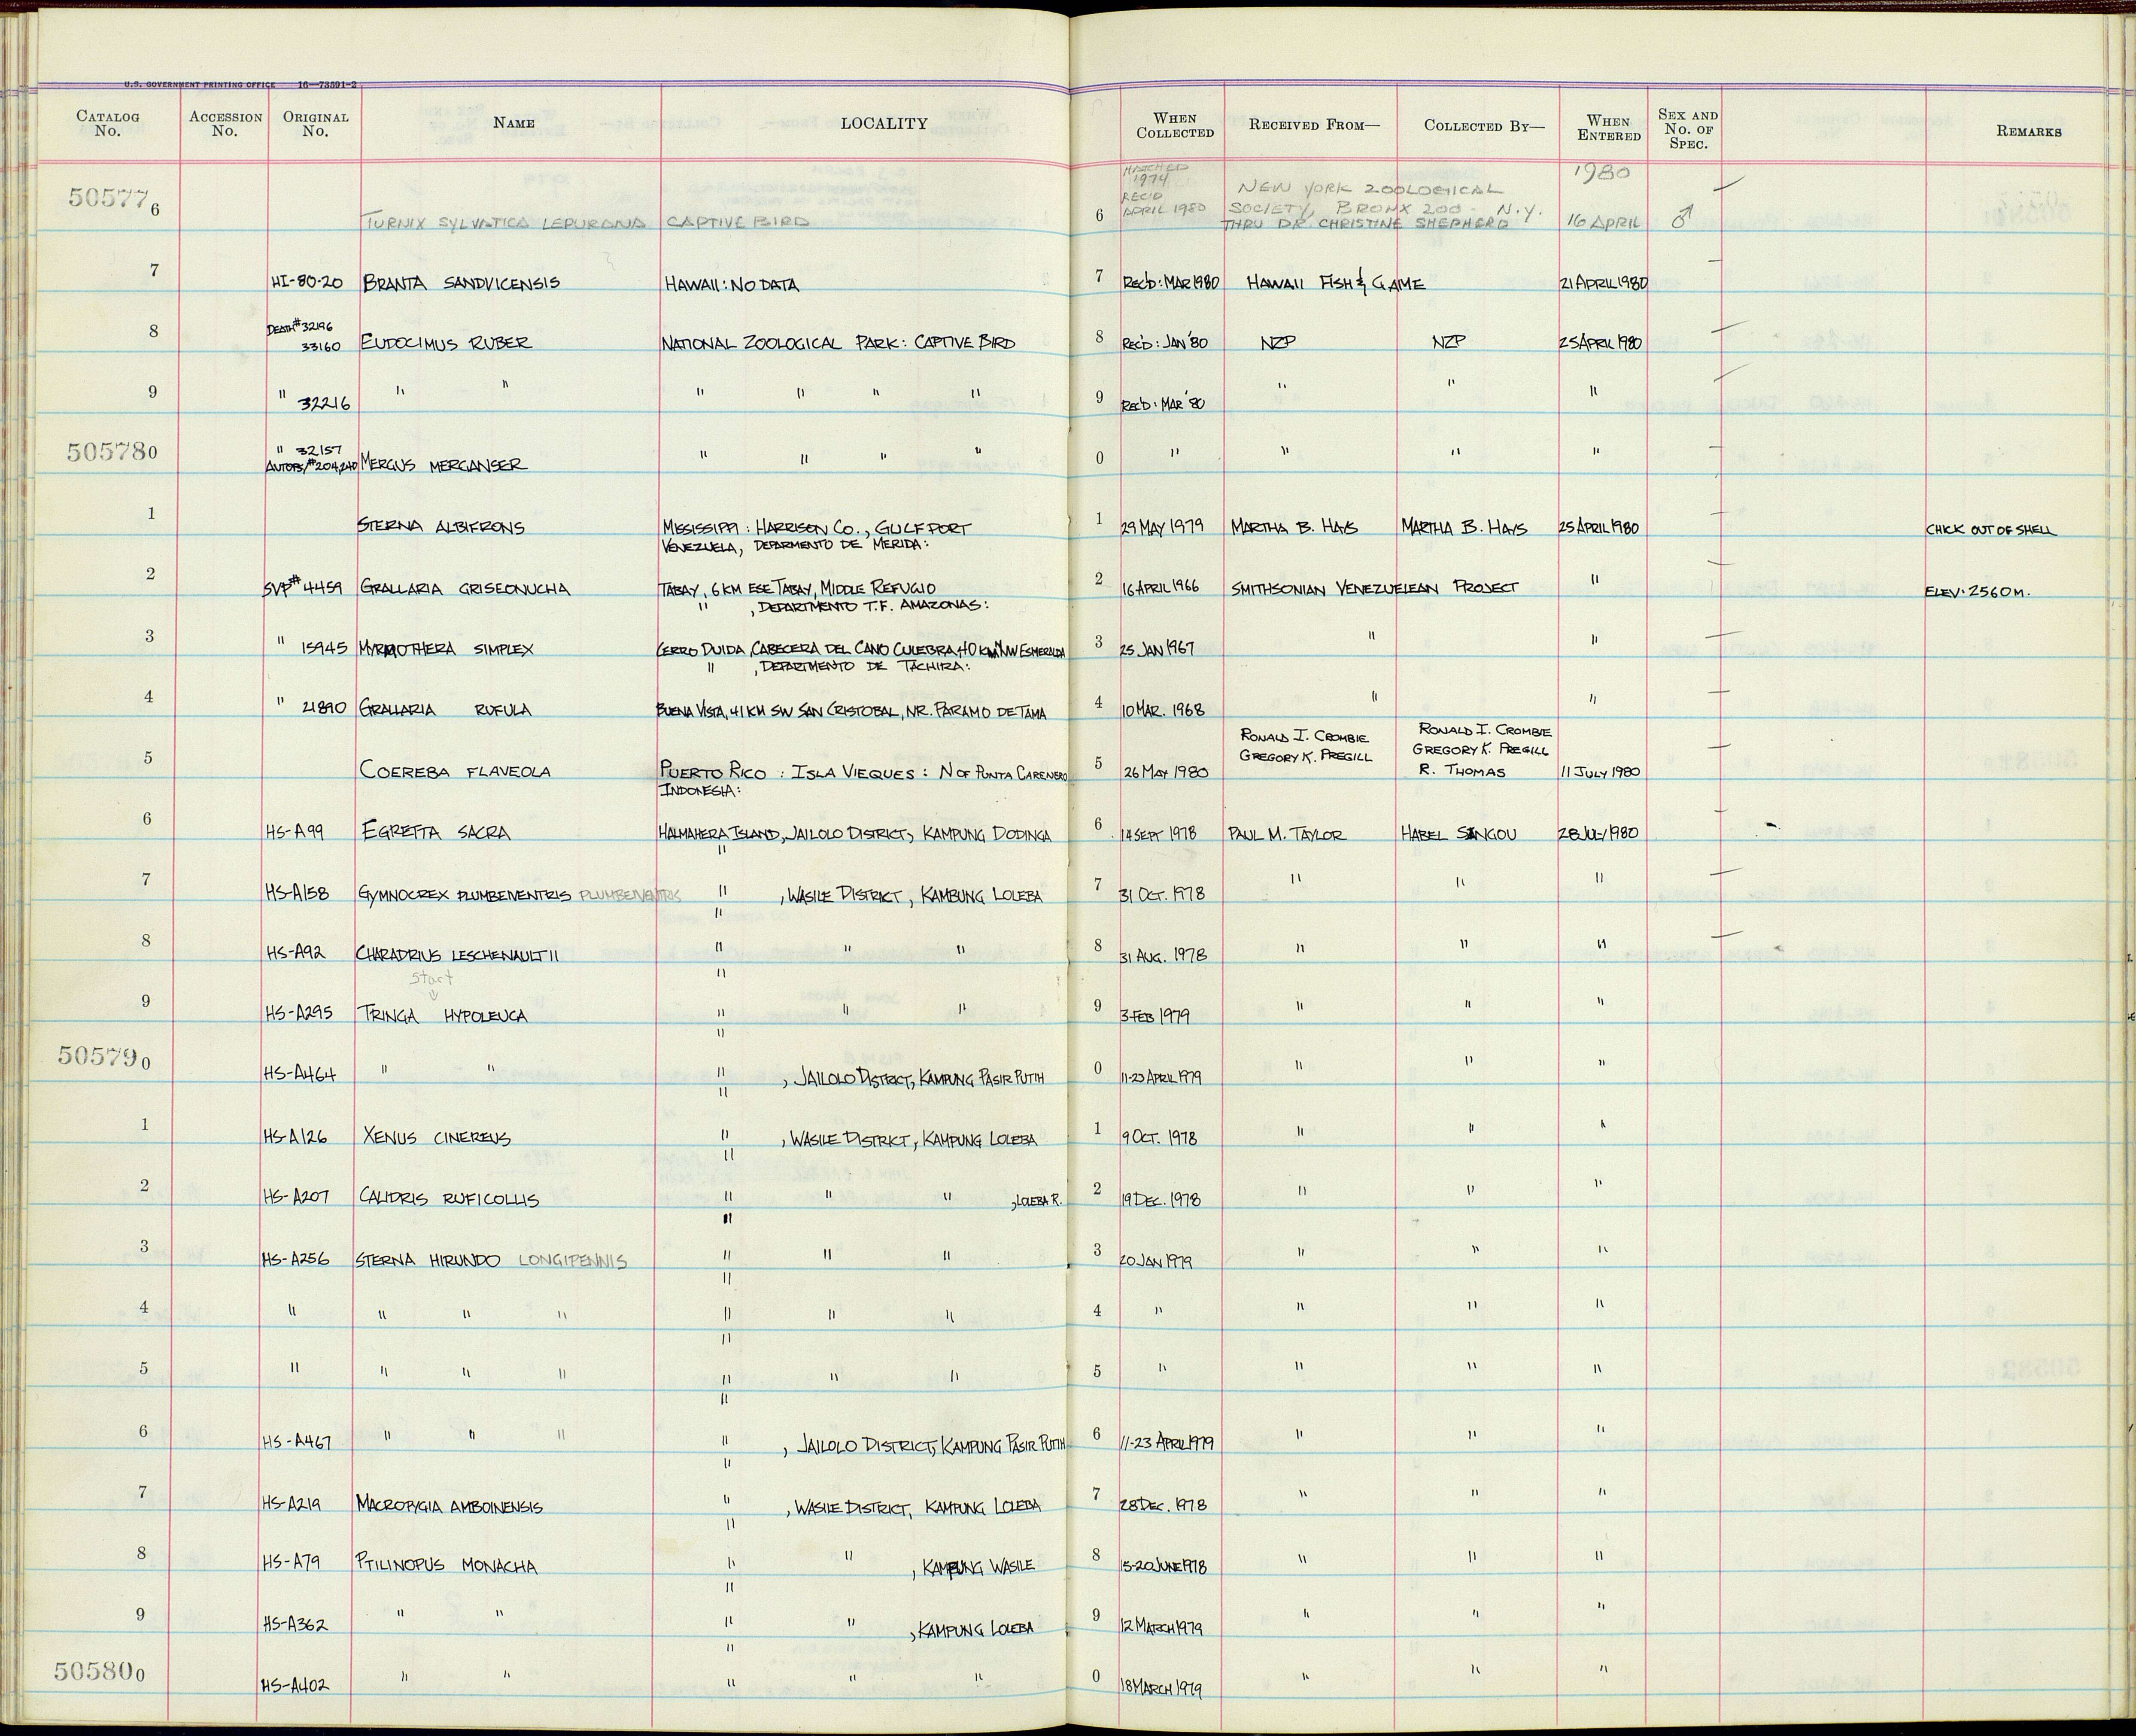 U.S. GOVERNMENT PRINTING OFFICE 16—73591-2
CATALOG No. ACCESSION No. ORIGINAL No. NAME LOCALITY WHEN COLLECTED RECEIVED FROM— COLLECTED BY— WHEN ENTERED SEX AND No. OF SPEC. REMARKS
HATCHED 1974 NEW YORK ZOOLOGICAL 1980
505776 TURNIX SYLVATICA LEPURANA CAPTIVE BIRD 6 REC'D APRIL 1980 SOCIETY, BRONX ZOO - N.Y. THRU DR. CHRISTINE SHEPHERD 16 APRIL ♂
7 HI-80-20 BRANTA SANDVICENSIS HAWAII: NO DATA 7 REC'D: MAR 1980 HAWAII FISH & GAME 21 APRIL 1980
DEATH # 32196
8 33160 EUDOCIMUS RUBER NATIONAL ZOOLOGICAL PARK: CAPTIVE BIRD 8 REC'D: JAN '80 NZP NZP 25 APRIL 1980
9 " 32216 " " " " " " 9 REC'D: MAR '80 " " "
" 32157
505780 AUTOPSY # 204,240 MERGUS MERGANSER " " " " 0 " " " "
1 STERNA ALBIFRONS MISSISSIPPI: HARRISON CO., GULFPORT 1 29 MAY 1979 MARTHA B. HAYS MARTHA B. HAYS 25 APRIL 1980 CHICK OUT OF SHELL
VENEZUELA, DEPARMENTO DE MERIDA:
2 SVP# 4459 GRALLARIA GRISEONUCHA TABAY, 6 KM ESE TABAY, MIDDLE REFUGIO 2 16 APRIL 1966 SMITHSONIAN VENEZUELEAN PROJECT " ELEV. 2560 M.
" , DEPARTMENTO T.F. AMAZONAS:
3 " 15945 MYRMOTHERA SIMPLEX CERRO DUIDA, CABECERA DEL CANO CULEBRA, 40 KM NNW ESMERALDA 3 25 JAN 1967 " "
" , DEPARTMENTO DE TACHIRA:
4 " 21890 GRALLARIA RUFULA BUENA VISTA, 41 KM SW SAN CRISTOBAL, NR. PARAMO DE TAMA 4 10 MAR. 1968 " "
RONALD I. CROMBIE RONALD I. CROMBIE
GREGORY K. PREGILL GREGORY K. PREGILL
5 COEREBA FLAVEOLA PUERTO RICO: ISLA VIEQUES: N OF PUNTA CARENERO 5 26 MAY 1980 R. THOMAS 11 JULY 1980
INDONESIA:
6 HS-A99 EGRETTA SACRA HALMAHERA ISLAND, JAILOLO DISTRICT, KAMPUNG DODINGA 6 14 SEPT 1978 PAUL M. TAYLOR HABEL SINGOU 28 JULY 1980
"
7 HS-A158 GYMNOCREX PLUMBEIVENTRIS PLUMBEIVENTRIS " , WASILE DISTRICT, KAMPUNG LOLEBA 7 31 OCT. 1978 " " "
"
8 HS-A92 CHARADRIUS LESCHENAULTII " " " 8 31 AUG. 1978 " " "
Start "
9 HS-A295 TRINGA HYPOLEUCA " " " 9 3 FEB 1979 " " "
"
505790 HS-A464 " " " , JAILOLO DISTRICT, KAMPUNG PASIR PUTIH 0 11-23 APRIL 1979 " " "
"
1 HS-A126 XENUS CINEREUS " , WASILE DISTRICT, KAMPUNG LOLEBA 1 9 OCT. 1978 " " "
"
2 HS-A207 CALIDRIS RUFICOLLIS " " " , LOLEBA R. 2 19 DEC. 1978 " " "
"
3 HS-A256 STERNA HIRUNDO LONGIPENNIS " " " 3 20 JAN 1979 " " "
"
4 " " " " " " " 4 " " " "
"
5 " " " " " " " 5 " " " "
"
6 HS-A467 " " " " , JAILOLO DISTRICT, KAMPUNG PASIR PUTIH 6 11-23 APRIL 1979 " " "
"
7 HS-A219 MACROPYGIA AMBOINENSIS " , WASILE DISTRICT, KAMPUNG LOLEBA 7 28 DEC. 1978 " " "
"
8 HS-A79 PTILINOPUS MONACHA " " , KAMPUNG WASILE 8 15-20 JUNE 1978 " " "
"
9 HS-A362 " " " " , KAMPUNG LOLEBA 9 12 MARCH 1979 " " "
"
505800 HS-A402 " " " " " 0 18 MARCH 1979 " " "